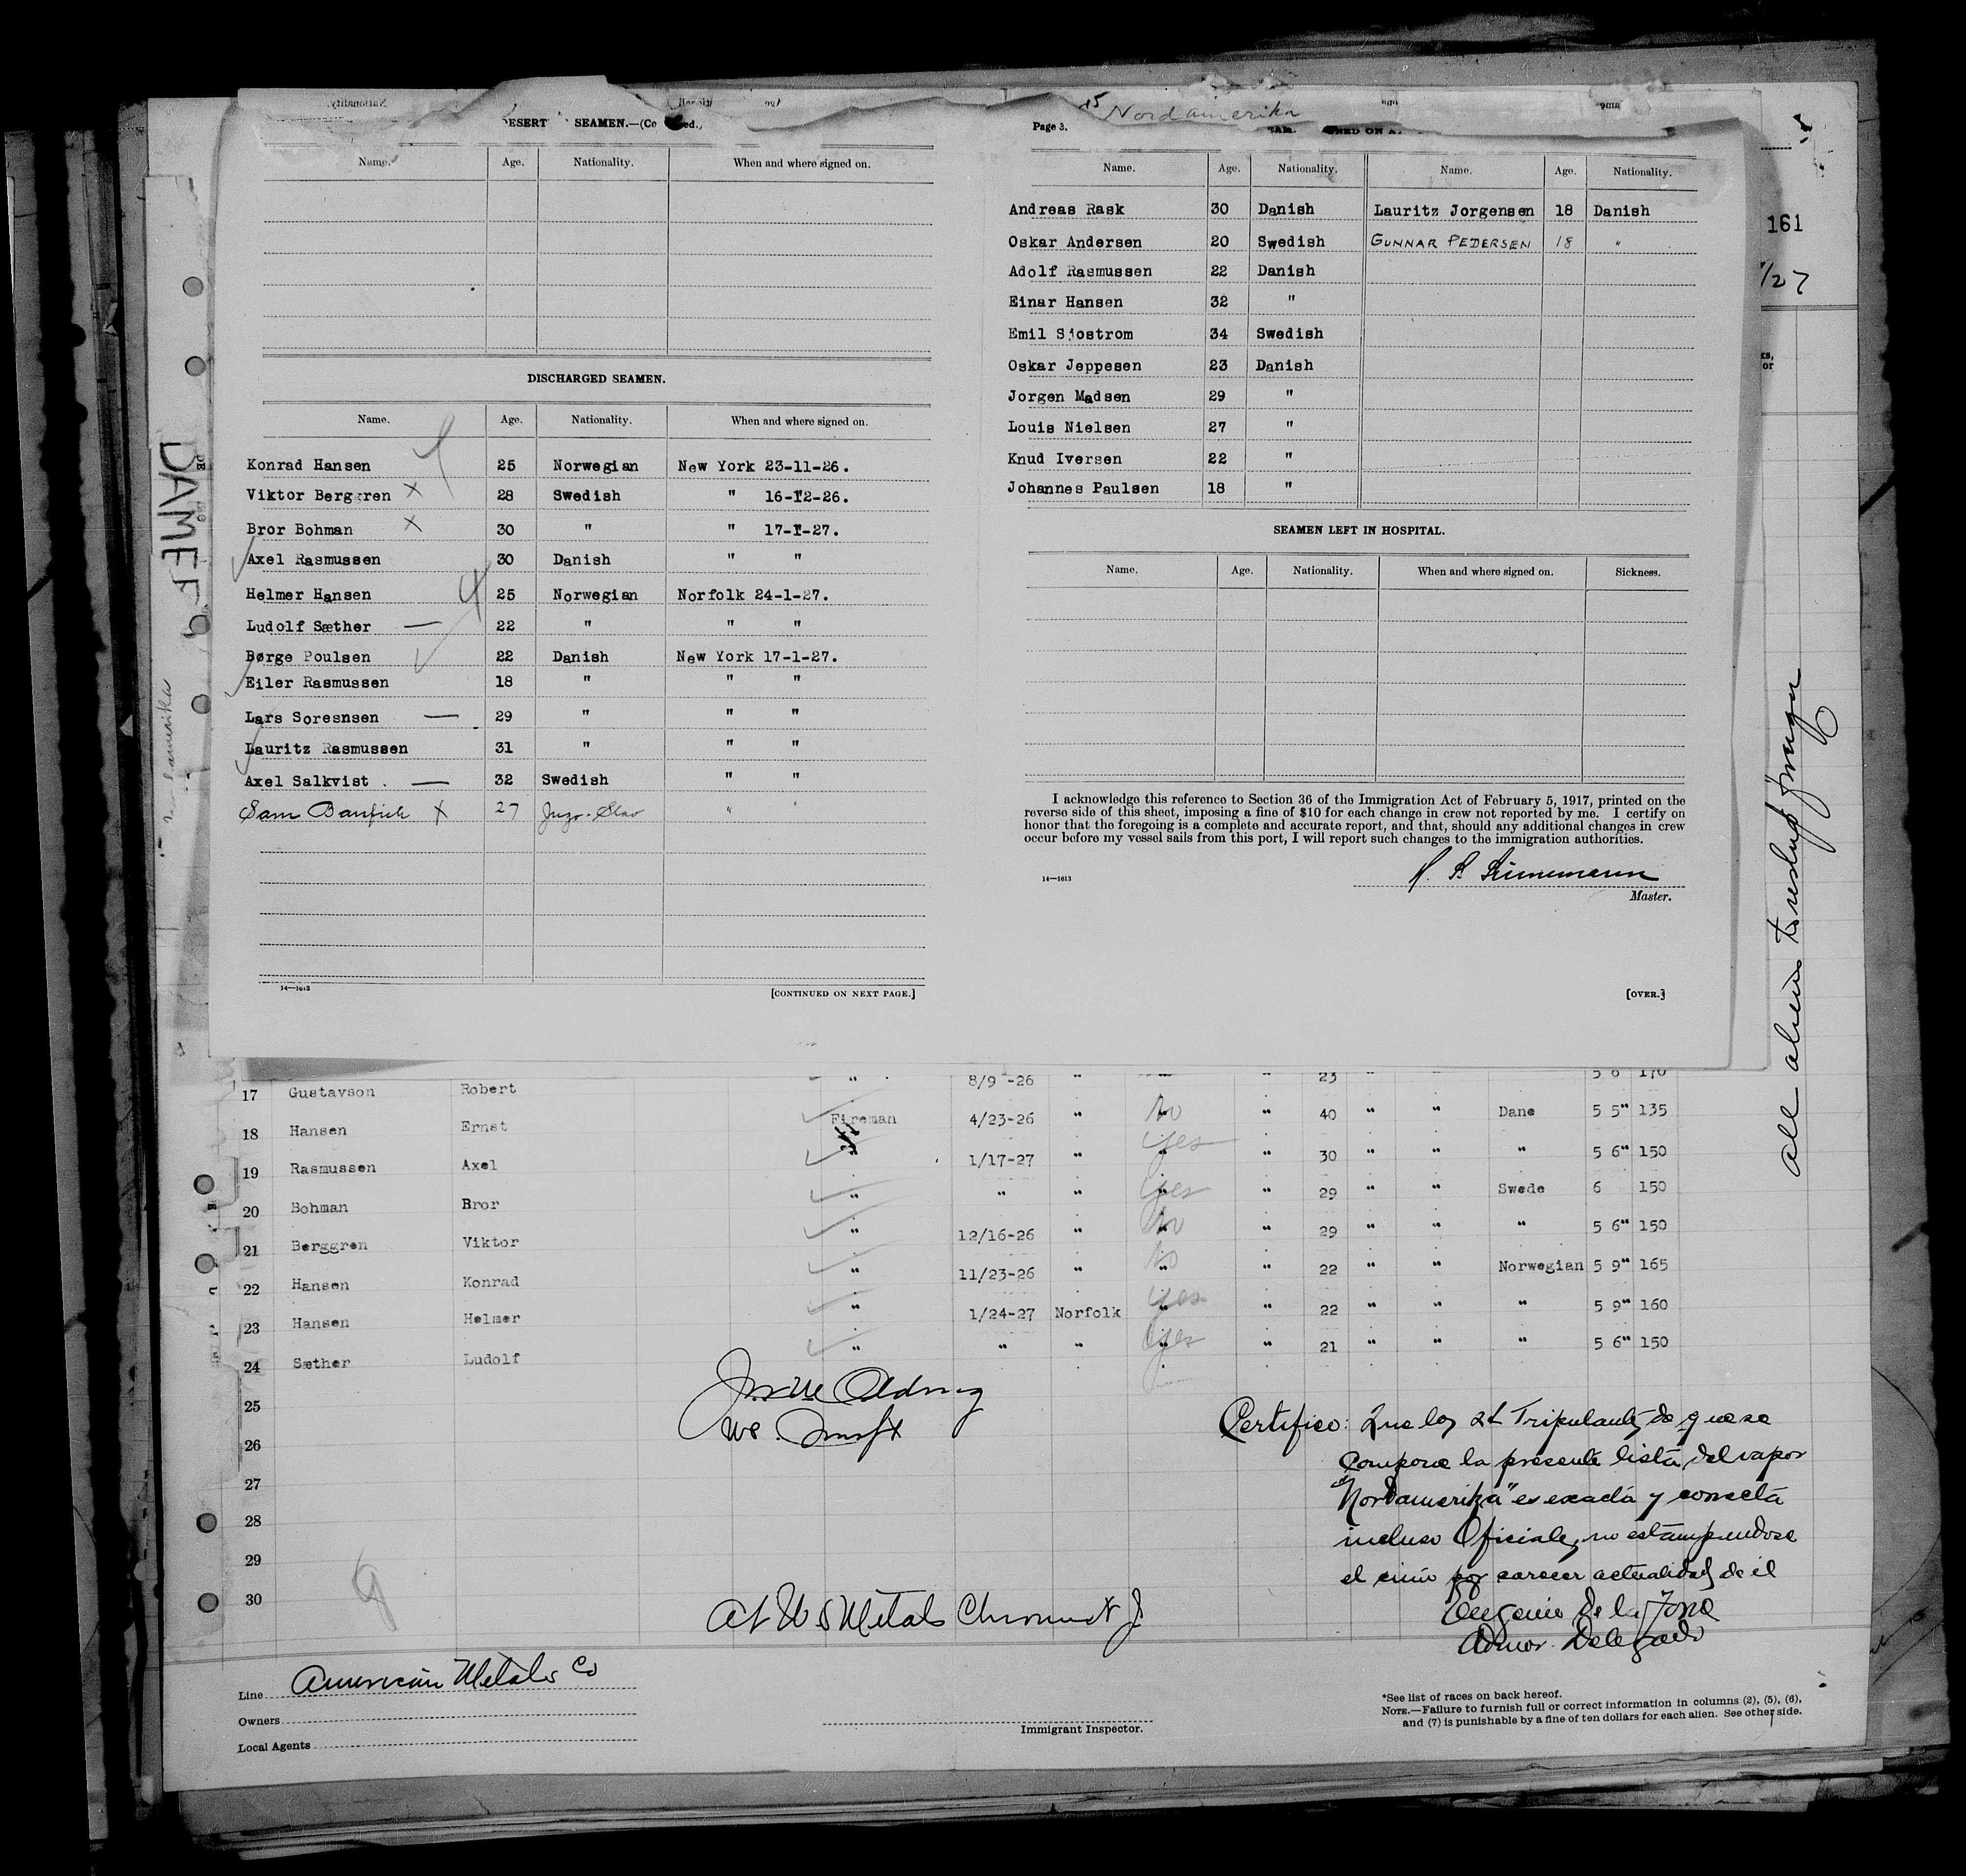 DESERT SEAMEN.—(Co ed.,
Name. Age. Nationality. When and where signed on.
DISCHARGED SEAMEN.
Name. Age. Nationality. When and where signed on.
Konrad Hansen 25 Norwegian New York 23-11-26.
Viktor Berggren X 28 Swedish " 16-12-26.
Bror Bohman X 30 " " 17-1-27.
Axel Rasmussen 30 Danish " "
Helmer Hansen 25 Norwegian Norfolk 24-1-27.
Ludolf Sæther — 22 " " "
Børge Poulsen 22 Danish New York 17-1-27.
Eiler Rasmussen 18 " " "
Lars Soresnsen — 29 " " "
Lauritz Rasmussen 31 " " "
Axel Salkvist . — 32 Swedish " "
Sam X 27 Jugo-Slav " "
14—1613 [CONTINUED ON NEXT PAGE.]
Nordamerika
Page 3.
Name. Age. Nationality. Name. Age. Nationality.
Andreas Rask 30 Danish Lauritz Jorgensen 18 Danish
Oskar Andersen 20 Swedish GUNNAR PEDERSEN 18 "
Adolf Rasmussen 22 Danish
Einar Hansen 32 "
Emil Sjostrom 34 Swedish
Oskar Jeppesen 23 Danish
Jorgen Madsen 29 "
Louis Nielsen 27 "
Knud Iversen 22 "
Johannes Paulsen 18 "
SEAMEN LEFT IN HOSPITAL.
Name. Age. Nationality. When and where signed on. Sickness.
I acknowledge this reference to Section 36 of the Immigration Act of February 5, 1917, printed on the
reverse side of this sheet, imposing a fine of $10 for each change in crew not reported by me. I certify on
honor that the foregoing is a complete and accurate report, and that, should any additional changes in crew
occur before my vessel sails from this port, I will report such changes to the immigration authorities.
14—1613
Master.
[OVER.]
161
/27
ks,
or
all aliens
17 Gustavson Robert " 8/9 -26 " " " 23 " " 5 6 170
18 Hansen Ernst Fireman 4/23-26 " No " 40 " " Dane 5 5" 135
19 Rasmussen Axel " 1/17-27 " Yes " 30 " " " 5 6" 150
20 Bohman Bror " " " Yes " 29 " " Swede 6 150
21 Berggren Viktor " 12/16-26 " No " 29 " " " 5 6" 150
22 Hansen Konrad " 11/23-26 " No " 22 " " Norwegian 5 9" 165
23 Hansen Helmer " 1/24-27 Norfolk Yes " 22 " " " 5 9" 160
24 Sæther Ludolf " " " Yes " 21 " " " 5 6" 150
25
26
27
28
29
30
Certifico: Que los 24 Tripulantes de que se
compone la presente lista del vapor
"Nordamerika" es exacta y correcta
incluso Oficiales, no estampandose
el por carecer actualidad de él
Eugenio de la
Admor. Delegado
Line American Metals Co
Owners
Local Agents
Immigrant Inspector.
*See list of races on back hereof.
NOTE.—Failure to furnish full or correct information in columns (2), (5), (6),
and (7) is punishable by a fine of ten dollars for each alien. See other side.